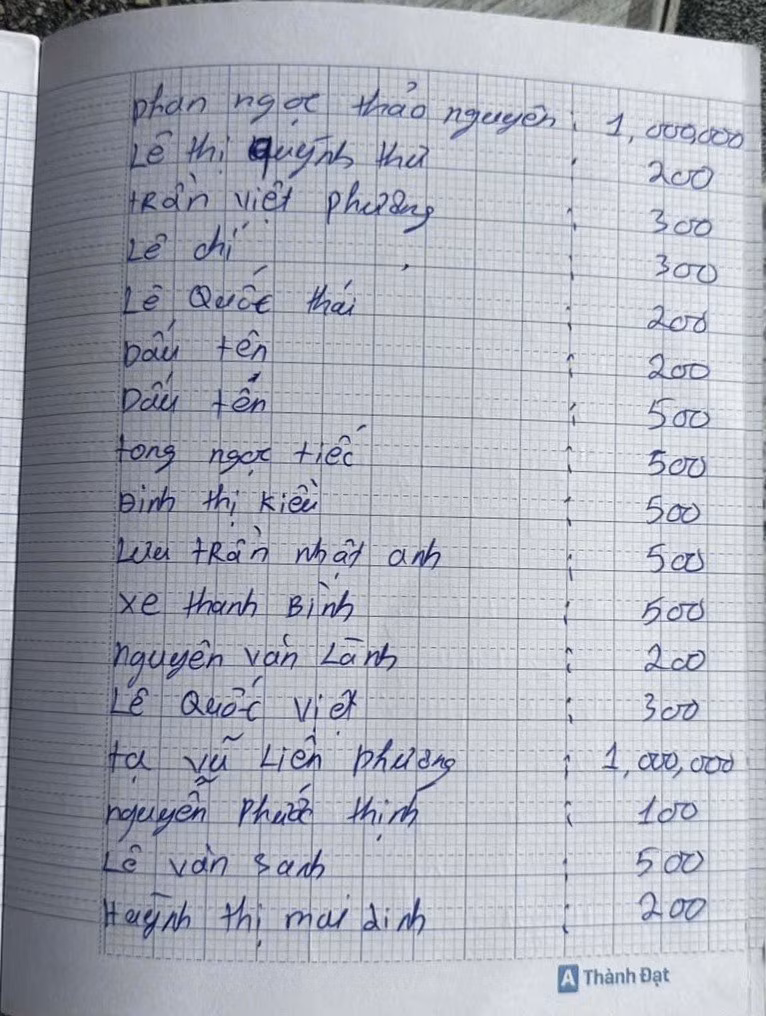 phan ngọc thảo nguyên : 1,000,000
Lê thị quỳnh thư : 200
tRần việt phương : 300
Lê chí : 300
Lê Quốc thái : 200
Dấu tên : 200
Dấu tên : 500
tong ngọc tiếc : 500
Đinh thị kiều : 500
Lưu tRần nhật anh : 500
xe thanh Bình : 500
nguyên văn Lành : 200
Lê Quốc việt : 300
tạ vũ Liên phương : 1,000,000
nguyễn phước thịnh : 100
Lê văn sanh : 500
Huỳnh thị mai dinh : 200
A Thành Đạt